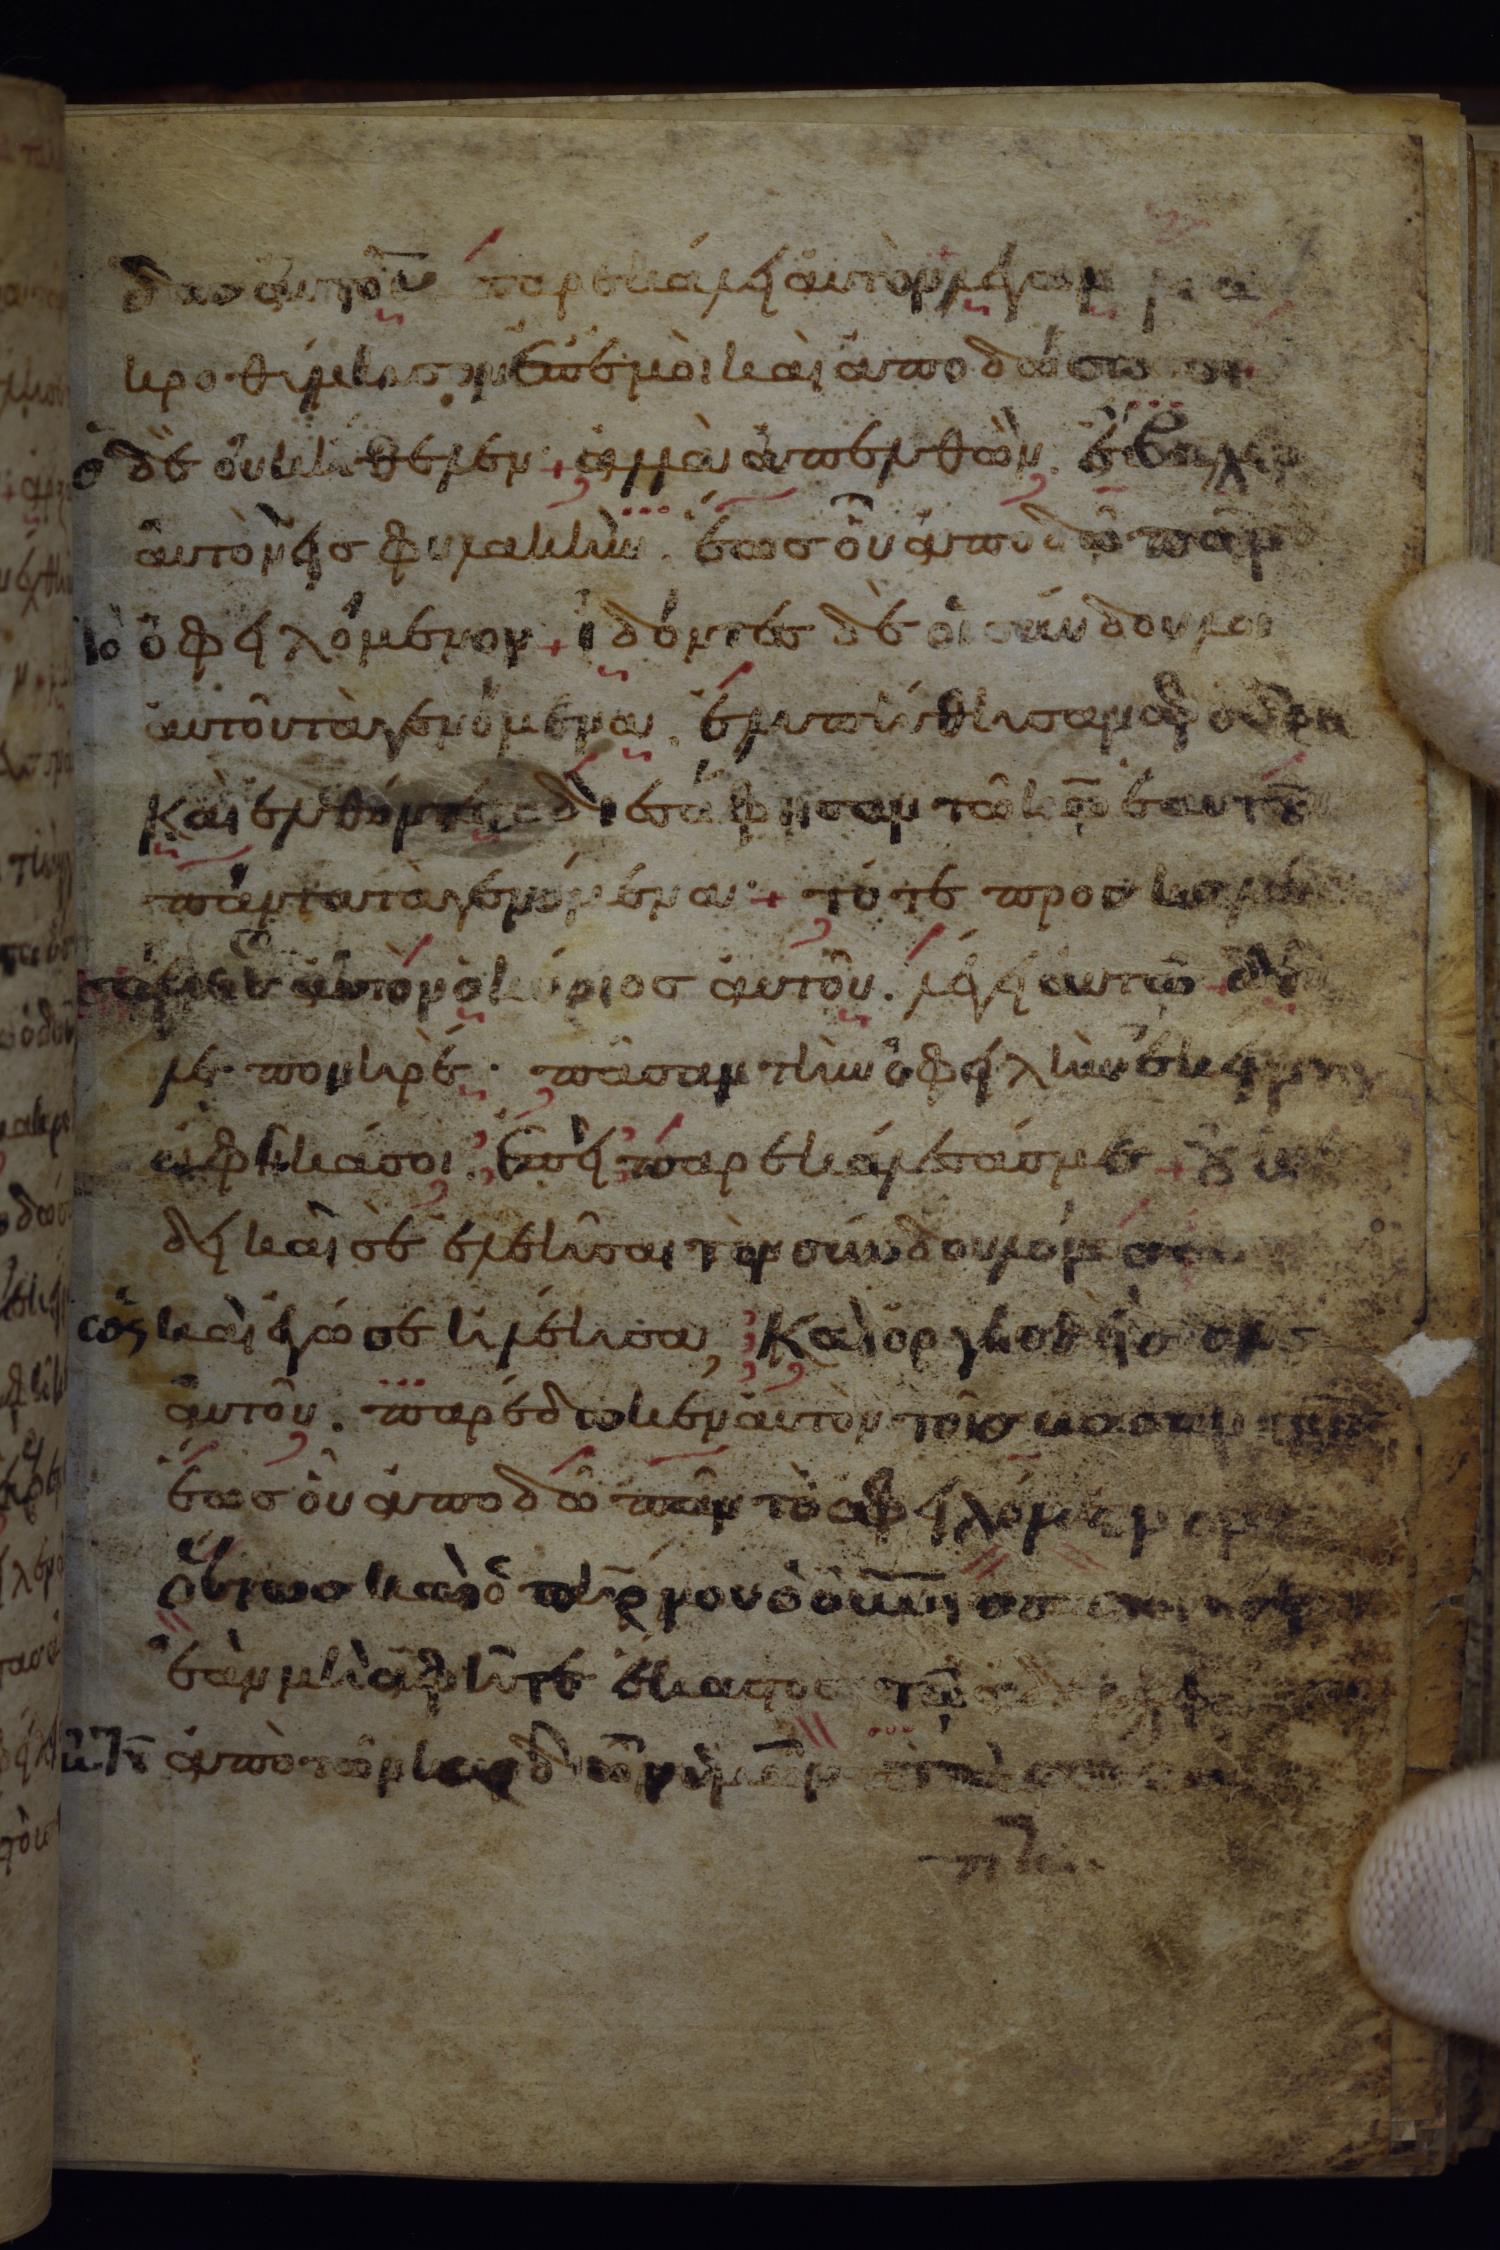 δας αὐτοῦ παρεκάλει αὐτὸν λέγων μα
κροθύμησον ἐπ' ἐμοὶ καὶ ἀποδώσω σοι
ὁ δὲ οὐκ ἤθελεν + ἀλλὰ ἀπελθὼν. ἔβαλεν
αὐτὸν εἰς φυλακὴν. ἕως οὗ ἀποδῶ πᾶν
τὸ ὀφειλόμενον + ἰδόντες δὲ οἱ σύνδουλοι
αὐτοῦ τὰ γενόμενα. ἐλυπήθησαν σφόδρα
Καὶ ἐλθόντες διεσάφησαν τῶ κῶ ἑαυτῶν
πάντα τὰ γενόμενα + τότε προσκαλε
σάμενος αὐτὸν ὁ κύριος αὐτοῦ. λέγει αὐτῶ + δοῦ
λε πονηρέ. πᾶσαν τὴν ὀφειλὴν ἐκείνην
ἀφῆκά σοι. ἐπεὶ παρεκάλεσάς με + οὐκ ἔ
δει καὶ σὲ ἐλεῆσαι τὸν σύνδουλόν σου
ὡς καὶ ἐγώ σε ἠλέησα, Καὶ ὀργισθεὶς ὁ κς
αὐτοῦ. παρέδωκεν αὐτὸν τοῖς βασανισταῖς
ἕως οὗ ἀποδῶ πᾶν τὸ ὀφειλόμενον
Οὕτως καὶ ὁ πηρ μου ὁ οὐνιος
ἐὰν μὴ ἀφῆτε ἕκαστος τῶ ἀδελφῶ
ἀπὸ τῶν καρδιῶν ὑμῶν τὰ